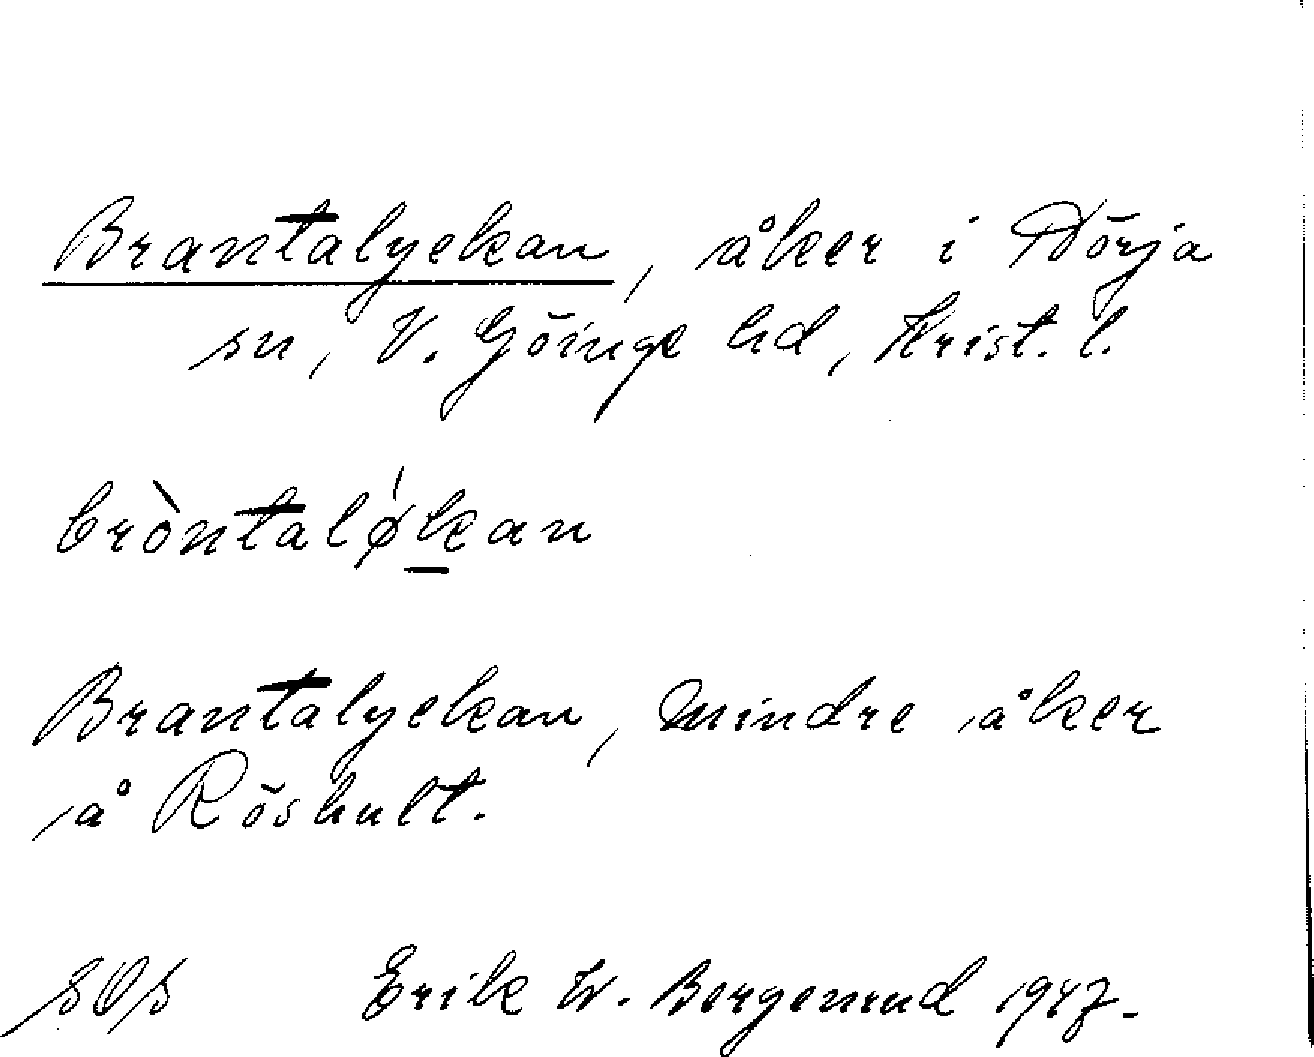 Brantalyckan, åker i Nörja
sn, V. Göinge hd, Krist. l.
bròntaløkan
Brantalyckan, mindre åker
å Röshult.
SOS Erik W. Bergemrud 1947.